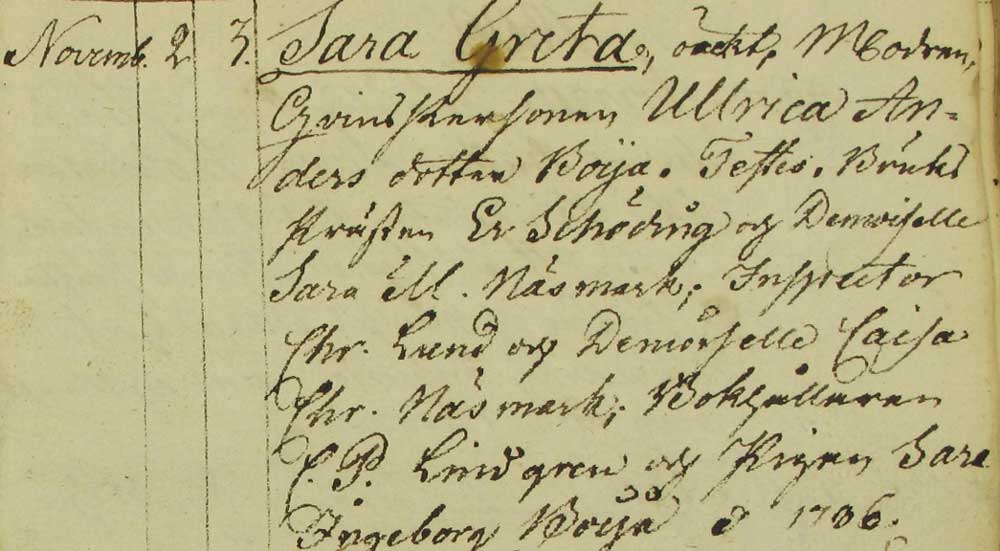 Novemb. 2 3. Sara Greta, oäckt, Modren,
Qvinspersonen Ullrica An-
ders dotter Boija. Testes. Bruks
Prästen Er Schöding och Demoiselle
Sara M. Näsmark; Inspector
Chr. Lund och Demoiselle Caisa
Chr. Näsmark; Bokhållaren
C. P. Lindgren och Pigan Sara
Ingeborg Boija